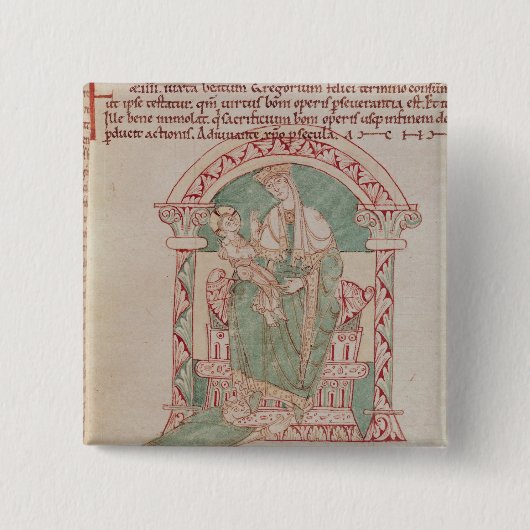 æ.IIII. iuxta beatum Gregorium felici termino consum
ut ipse testatur. qm̄ uirtus boni operis pseuerantia est. Et
Ille bene immolat. q sacrificium boni operis usq; in finem de
pducit actionis. Adiuuante xp̄o p secula. A